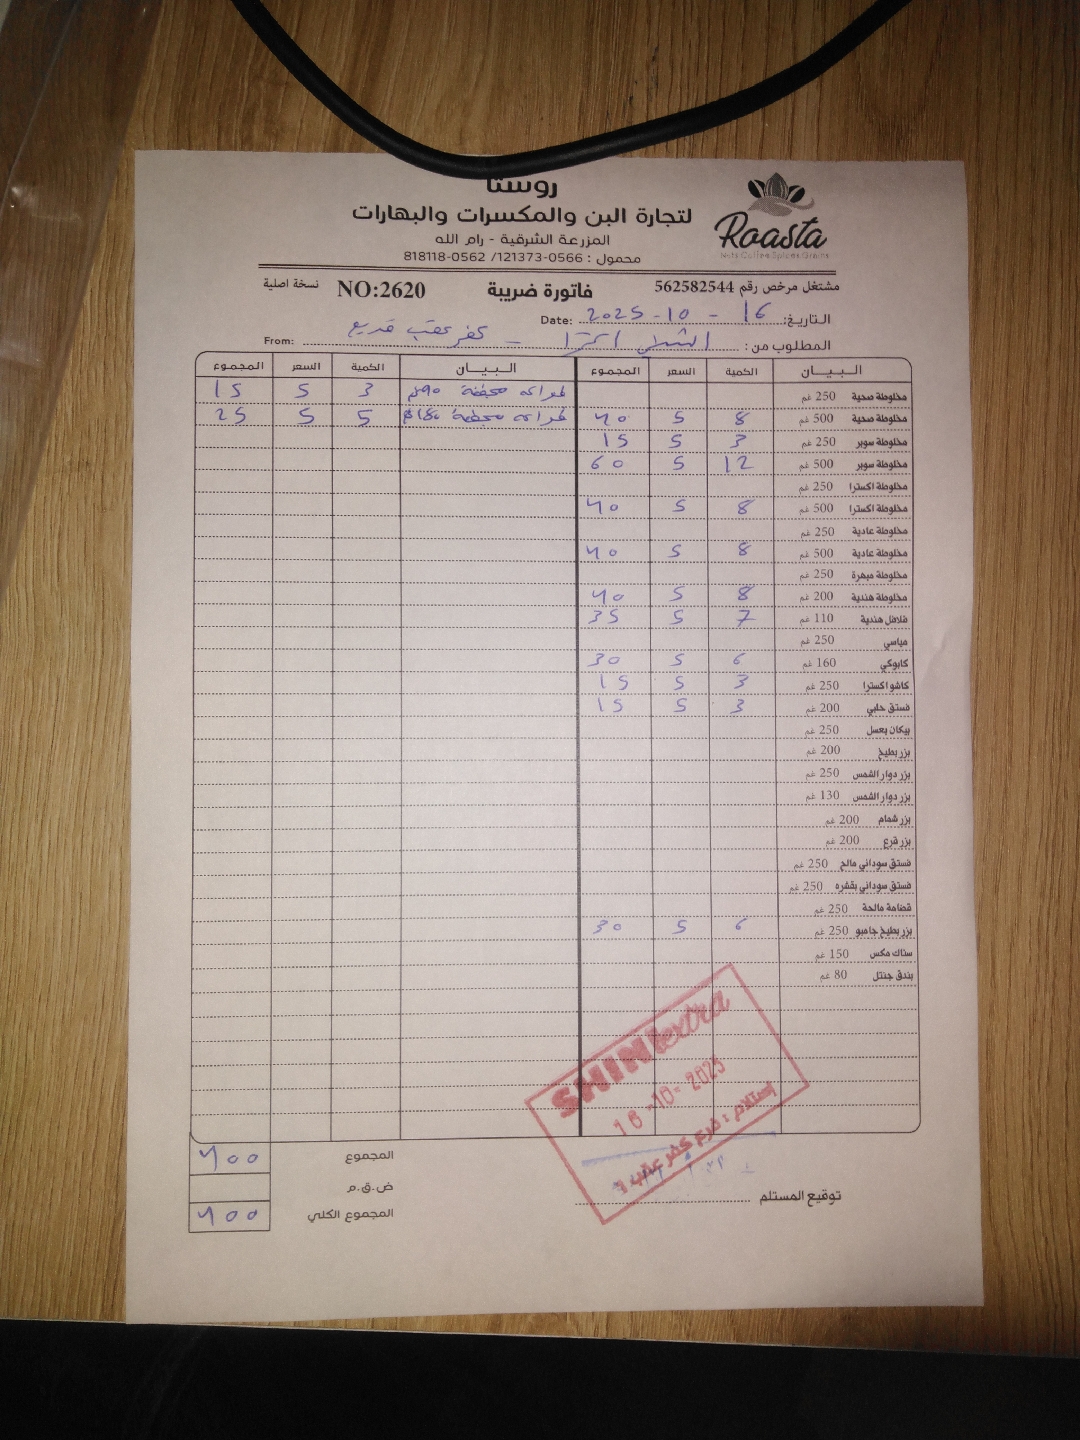 روستا
لتجارة البن والمكسرات والبهارات
المزرعة الشرقية - رام الله
محمول : 0566-121373 /0562-818118
Roasta
Nuts Coffee Spices Grains
مشتغل مرخص رقم 562582544 فاتورة ضريبة NO:2620 نسخة اصلية
التاريخ: 16 - 10 - 2025 Date:
المطلوب من : الشني اكسترا - كفر عقب From:
البـيـان الكمية السعر المجموع البـيـان الكمية السعر المجموع
مخلوطة صحية 250 غم 90غم 3 5 15
مخلوطة صحية 500 غم 8 5 40 5 5 25
مخلوطة سوبر 250 غم 3 5 15
مخلوطة سوبر 500 غم 12 5 60
مخلوطة اكسترا 250 غم
مخلوطة اكسترا 500 غم 8 5 40
مخلوطة عادية 250 غم
مخلوطة عادية 500 غم 8 5 40
مخلوطة مبهرة 250 غم
مخلوطة هندية 200 غم 8 5 40
فلافل هندية 110 غم 7 5 35
مياسي 250 غم
كابوكي 160 غم 6 5 30
كاشو اكسترا 250 غم 3 5 15
فستق حلبي 200 غم 3 5 15
بيكان بعسل 250 غم
بزر بطيخ 200 غم
بزر دوار الشمس 250 غم
بزر دوار الشمس 130 غم
بزر شمام 200 غم
بزر قرع 200 غم
فستق سوداني مالح 250 غم
فستق سوداني بقشره 250 غم
قضامة مالحة 250 غم
بزر بطيخ جامبو 250 غم 6 5 30
سناك مكس 150 غم
بندق جنتل 80 غم
SHINI extra
16 -10- 2025
إستلام : فرع كفر عقب
المجموع 400
ض.ق.م
المجموع الكلي 400
توقيع المستلم